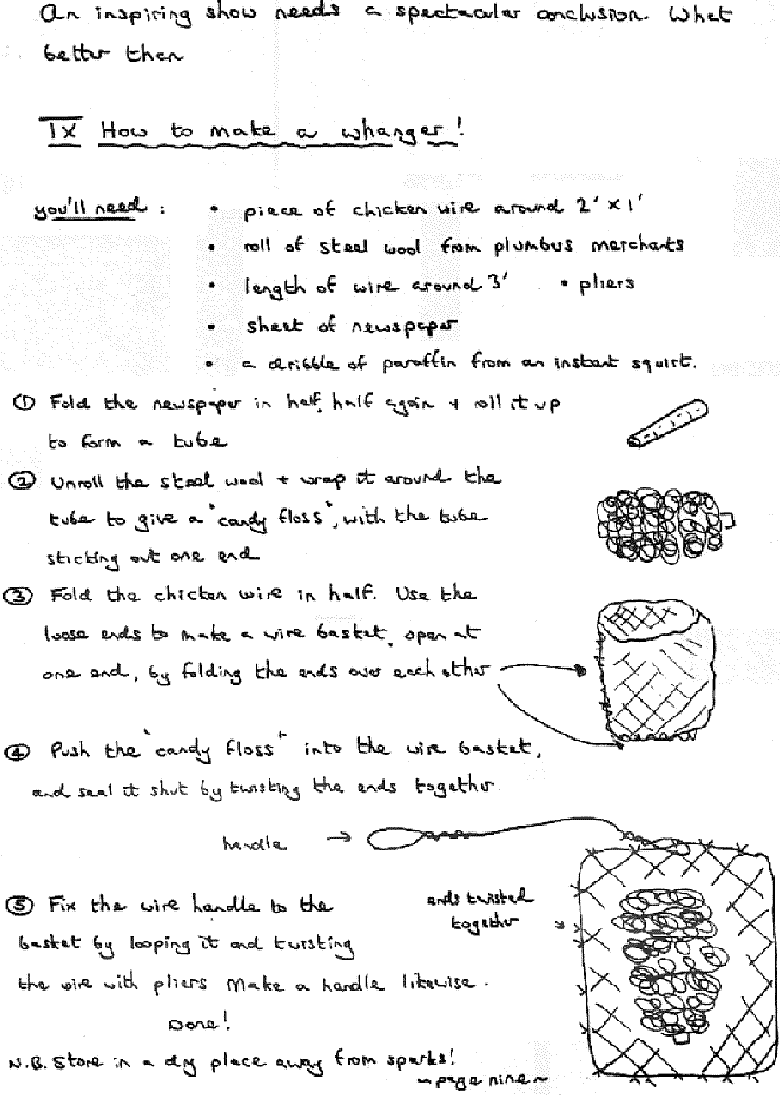 An inspiring show needs a spectacular conclusion. What
better than
IX How to make a whanger!
you'll need :
• piece of chicken wire around 2' x 1'
• roll of steel wool from plumbus merchants
• length of wire around 3' • pliers
• sheet of newspaper
• a dribble of paraffin from an instant squirt.
① Fold the newspaper in half, half again + roll it up
to form a tube
② Unroll the steel wool + wrap it around the
tube to give a "candy floss", with the tube
sticking out one end
③ Fold the chicken wire in half. Use the
loose ends to make a wire basket, open at
one end, by folding the ends over each other
④ Push the "candy floss" into the wire basket,
and seal it shut by twisting the ends together
handle →
⑤ Fix the wire handle to the
basket by looping it and twisting
the wire with pliers Make a handle likewise.
Done!
ends twisted
together
N.B. Store in a dry place away from sparks!
~page nine~